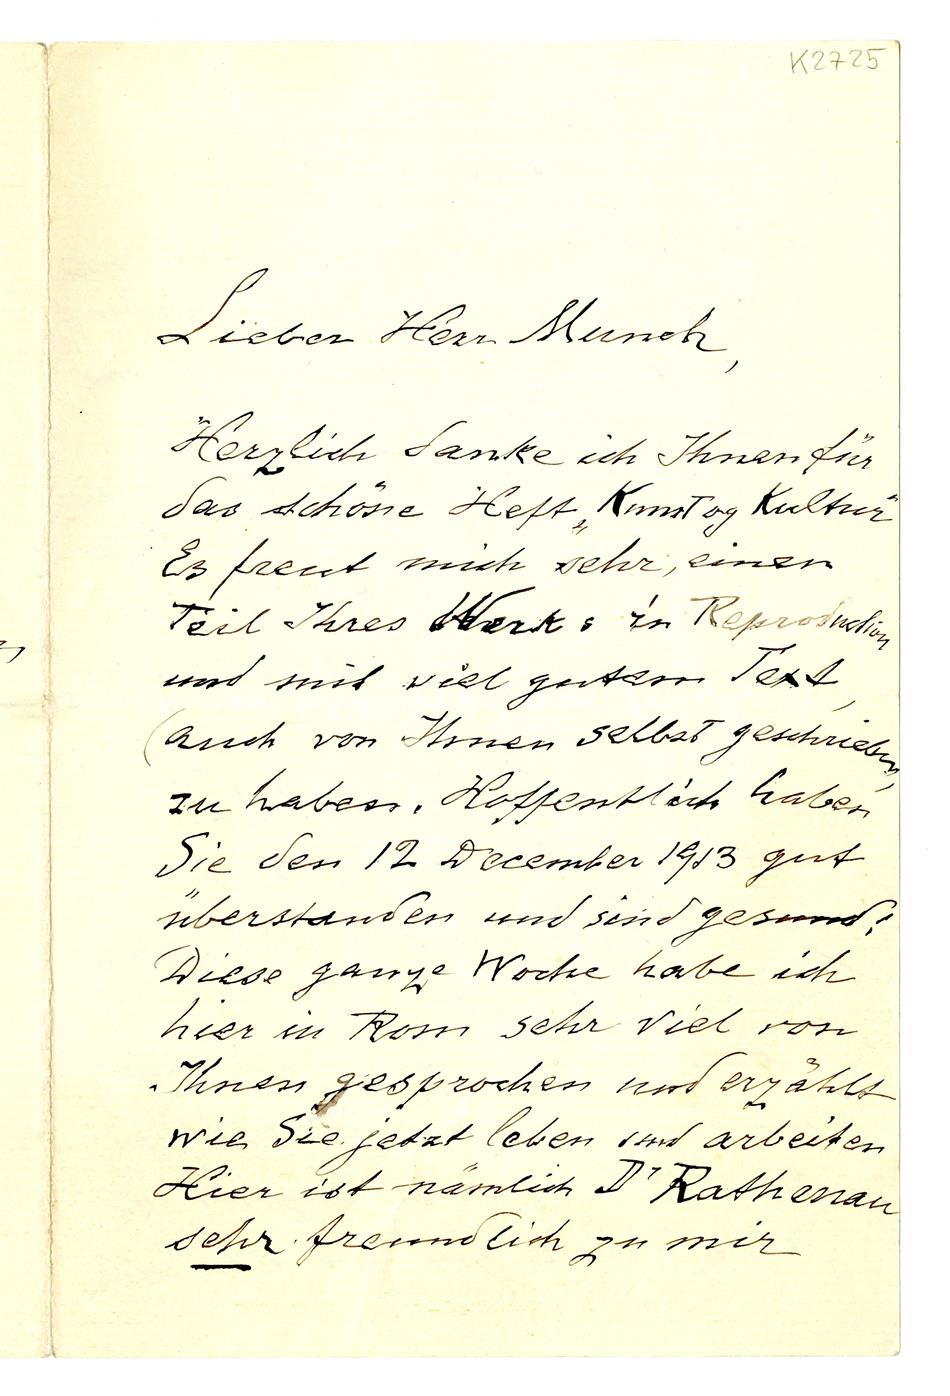 K2725
Lieber Herr Munch,
Herzlich danke ich Ihnen für
das schöne Heft „Kunst og Kultur"
Es freut mich sehr, einen
Teil Ihres Werkes in Reproduction
und mit viel gutem Text,
(auch von Ihnen selbst geschrieben,
zu haben. Hoffentlich haben
Sie den 12 December 1913 gut
überstanden und sind gesund!
Diese ganze Woche habe ich
hier in Rom sehr viel von
Ihnen gesprochen und erzählt
wie Sie jetzt leben und arbeiten
Hier ist nämlich Dr Rathenau
sehr freundlich zu mir